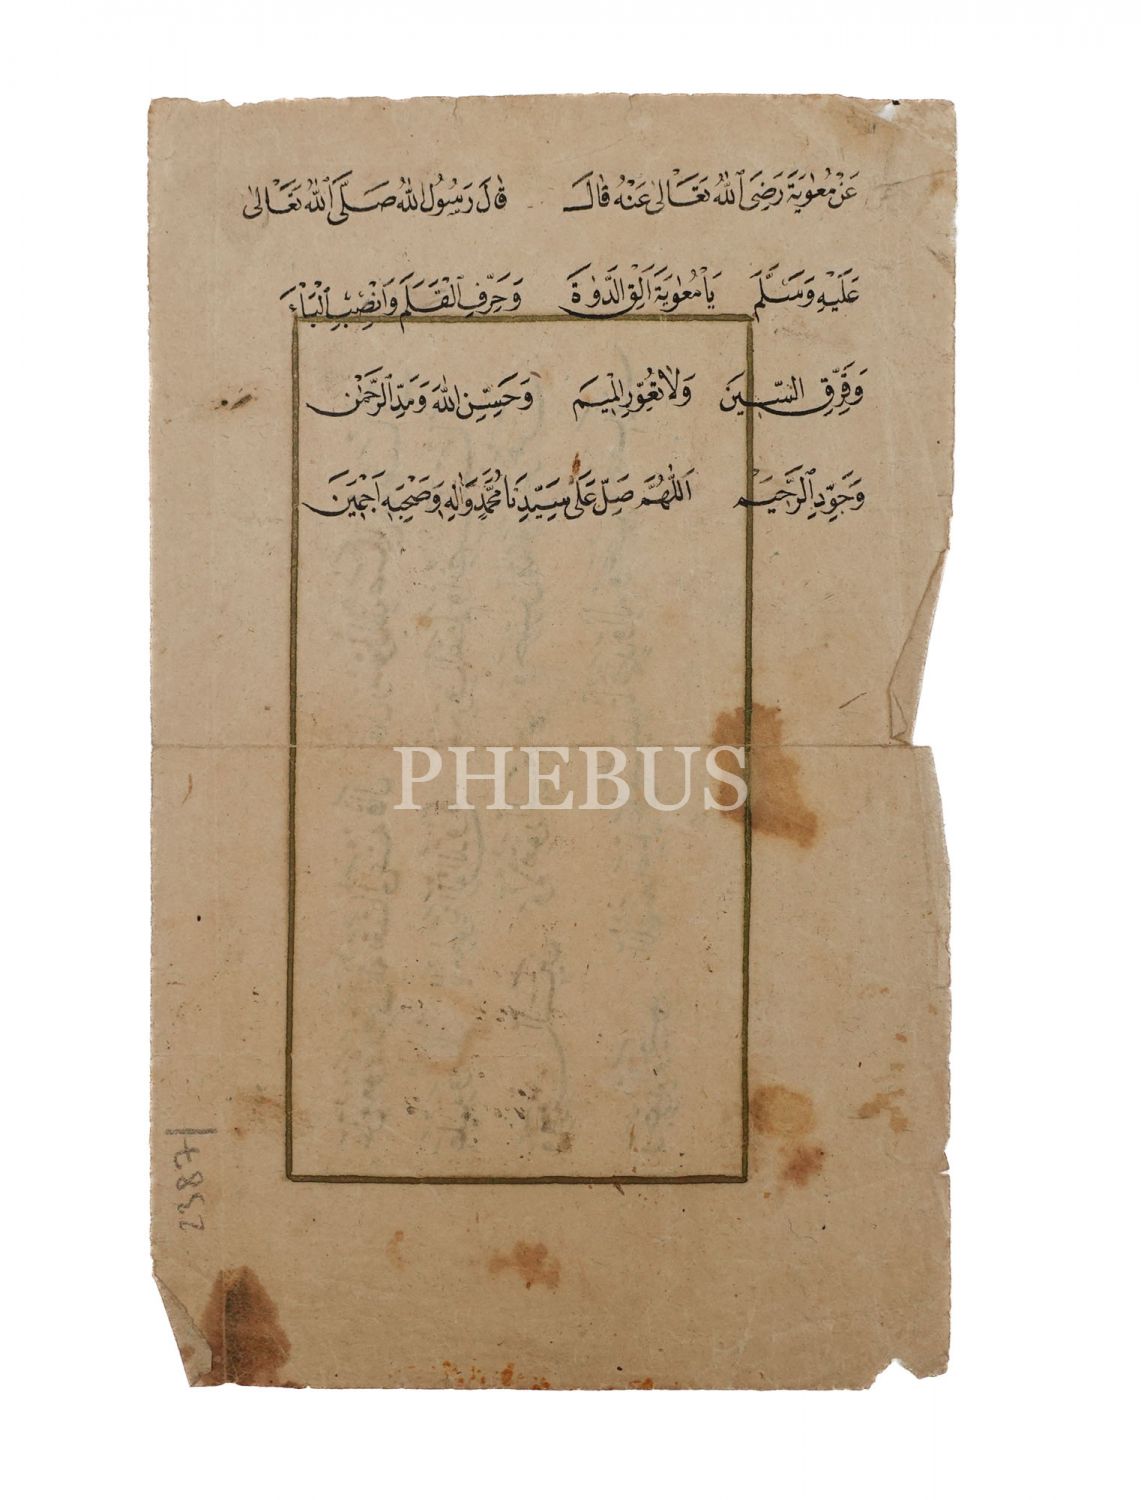 عَنْ مُعٰوِيَةَ رَضِيَ اللهُ تَعَالٰى عَنْهُ قٰالَ قٰالَ رَسُولُ اللهُ صَلَّى اللهُ تَعَالٰى
عَلَيْهِ وَسَلَّمَ يَا مُعٰوِيَةَ اَلِقِ الدَّوٰةَ وَحَرِّفِ الْقَلَمَ وَانْصِبِ الْبَاءَ
وَفَرِّقِ السّينَ وَلَا تُعَوِّرِ الْمِيمَ وَحَسِّنِ اللهَ وَمَدِّ الرَّحْمٰنَ
وَجَوِّدِ الرَّحِيمَ اَللّٰهُمَّ صَلِّ عَلٰى سَيِّدِنَا مُحَمَّدٍ وَاٰلِهِ وَصَحْبِهِ اَجْمَعِينَ
PHEBUS
2387